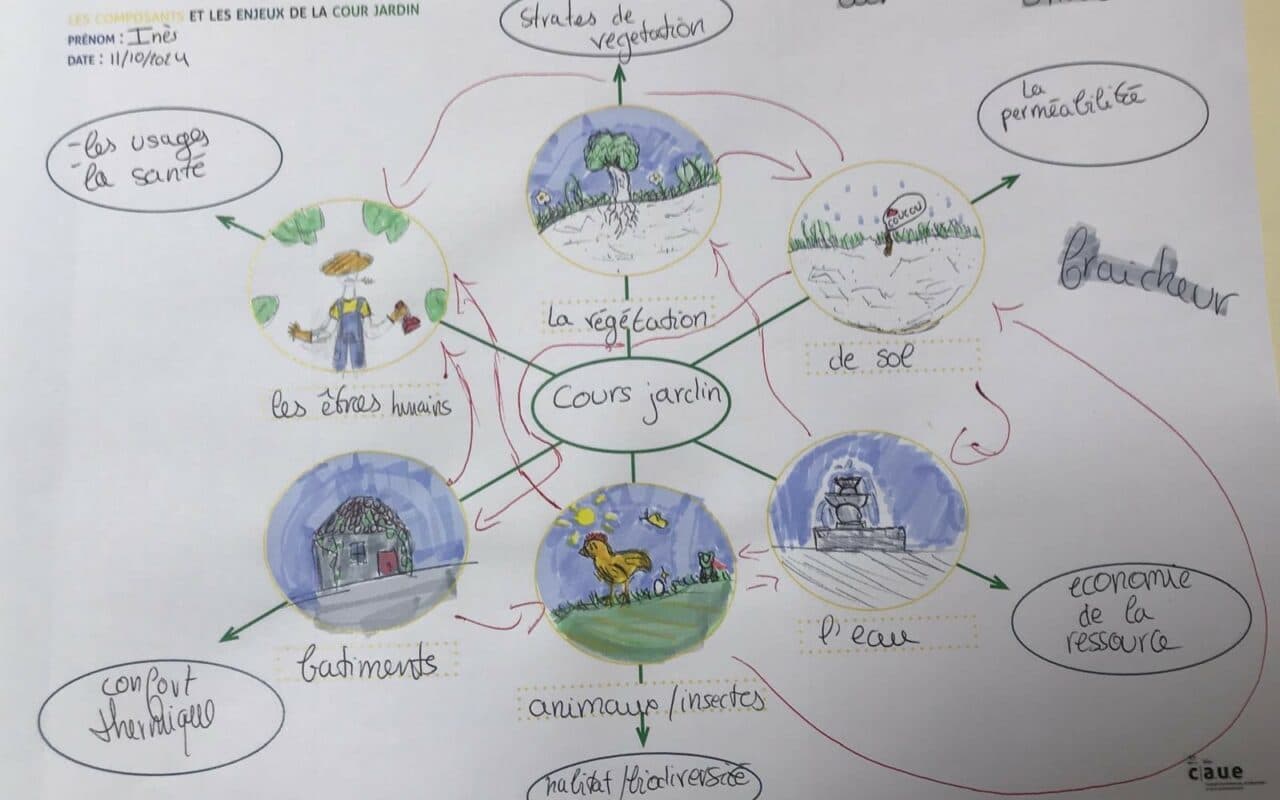 LES COMPOSANTS ET LES ENJEUX DE LA COUR JARDIN
PRÉNOM : Inès
DATE : 11/10/2024
Strates de
vegetation
- les usages
- la santé
La
perméabilité
COUCOU
fraicheur
La végétation
de sol
les êtres humains
Cours jardin
batiments
animaux/insectes
l'eau
economie
de la
ressource
confort
thermique
habitat/biodiversité
c|aue